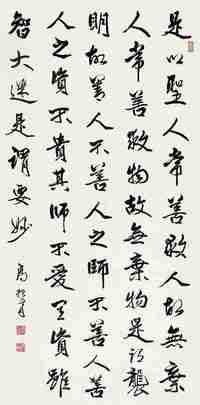 是以聖人常善救人故無棄
人常善救物故無棄物是謂襲
明故善人不善人之師不善人善
人之資不貴其師不愛其資雖
智大迷是謂要妙